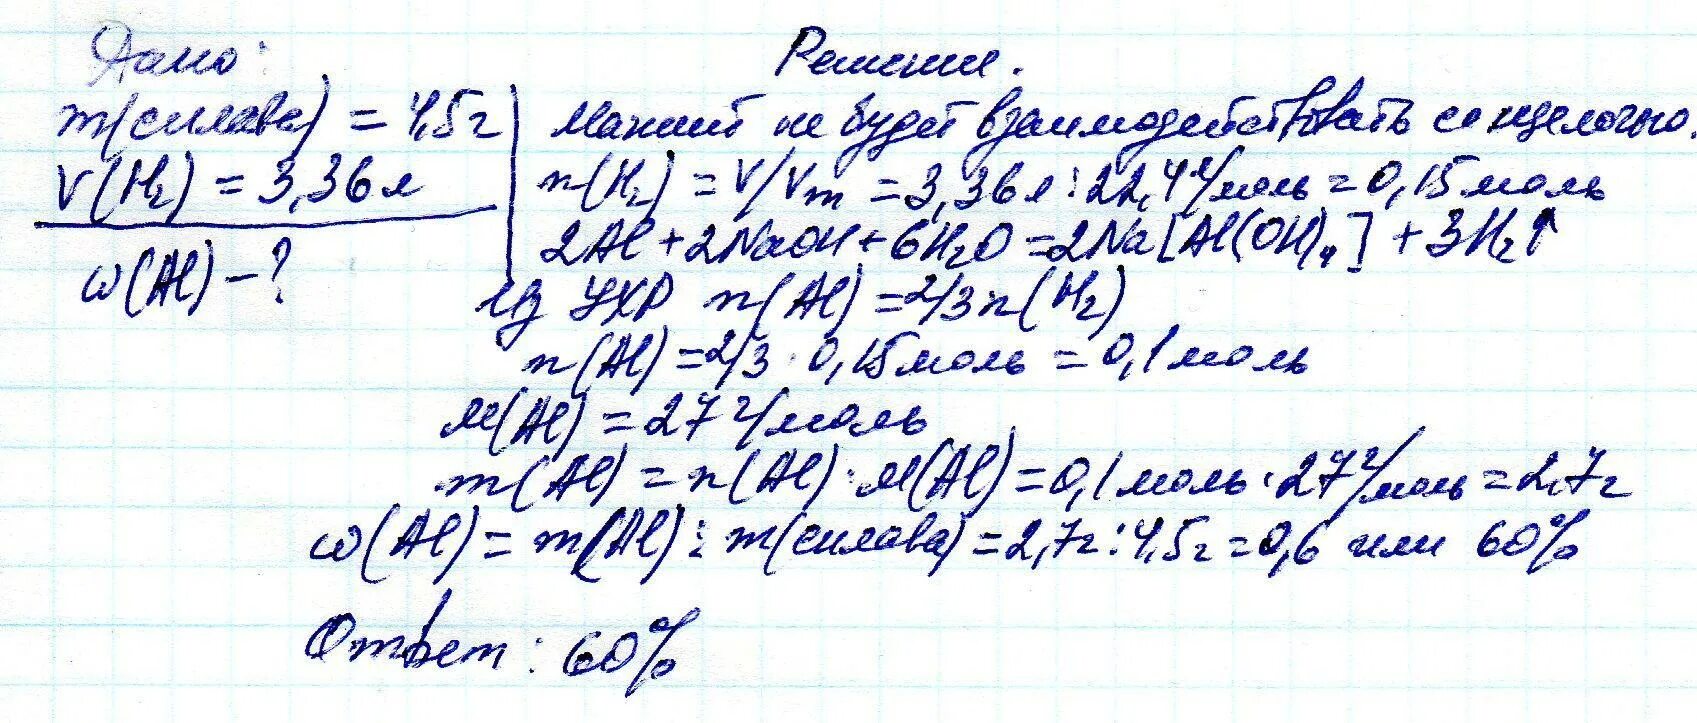 Дано:
Решение.
m(сплава) = 4,5г
V(H₂) = 3,36л
ω(Al) – ?
Магний не будет взаимодействовать со щелочью.
n(H₂) = V/Vm = 3,36л : 22,4 л/моль = 0,15 моль
2Al + 2NaOH + 6H₂O = 2Na[Al(OH)₄] + 3H₂↑
Из УХР n(Al) = 2/3 n(H₂)
n(Al) = 2/3 · 0,15 моль = 0,1 моль
M(Al) = 27 г/моль
m(Al) = n(Al) · M(Al) = 0,1 моль · 27 г/моль = 2,7г
ω(Al) = m(Al) : m(сплава) = 2,7г : 4,5г = 0,6 или 60%
Ответ: 60%